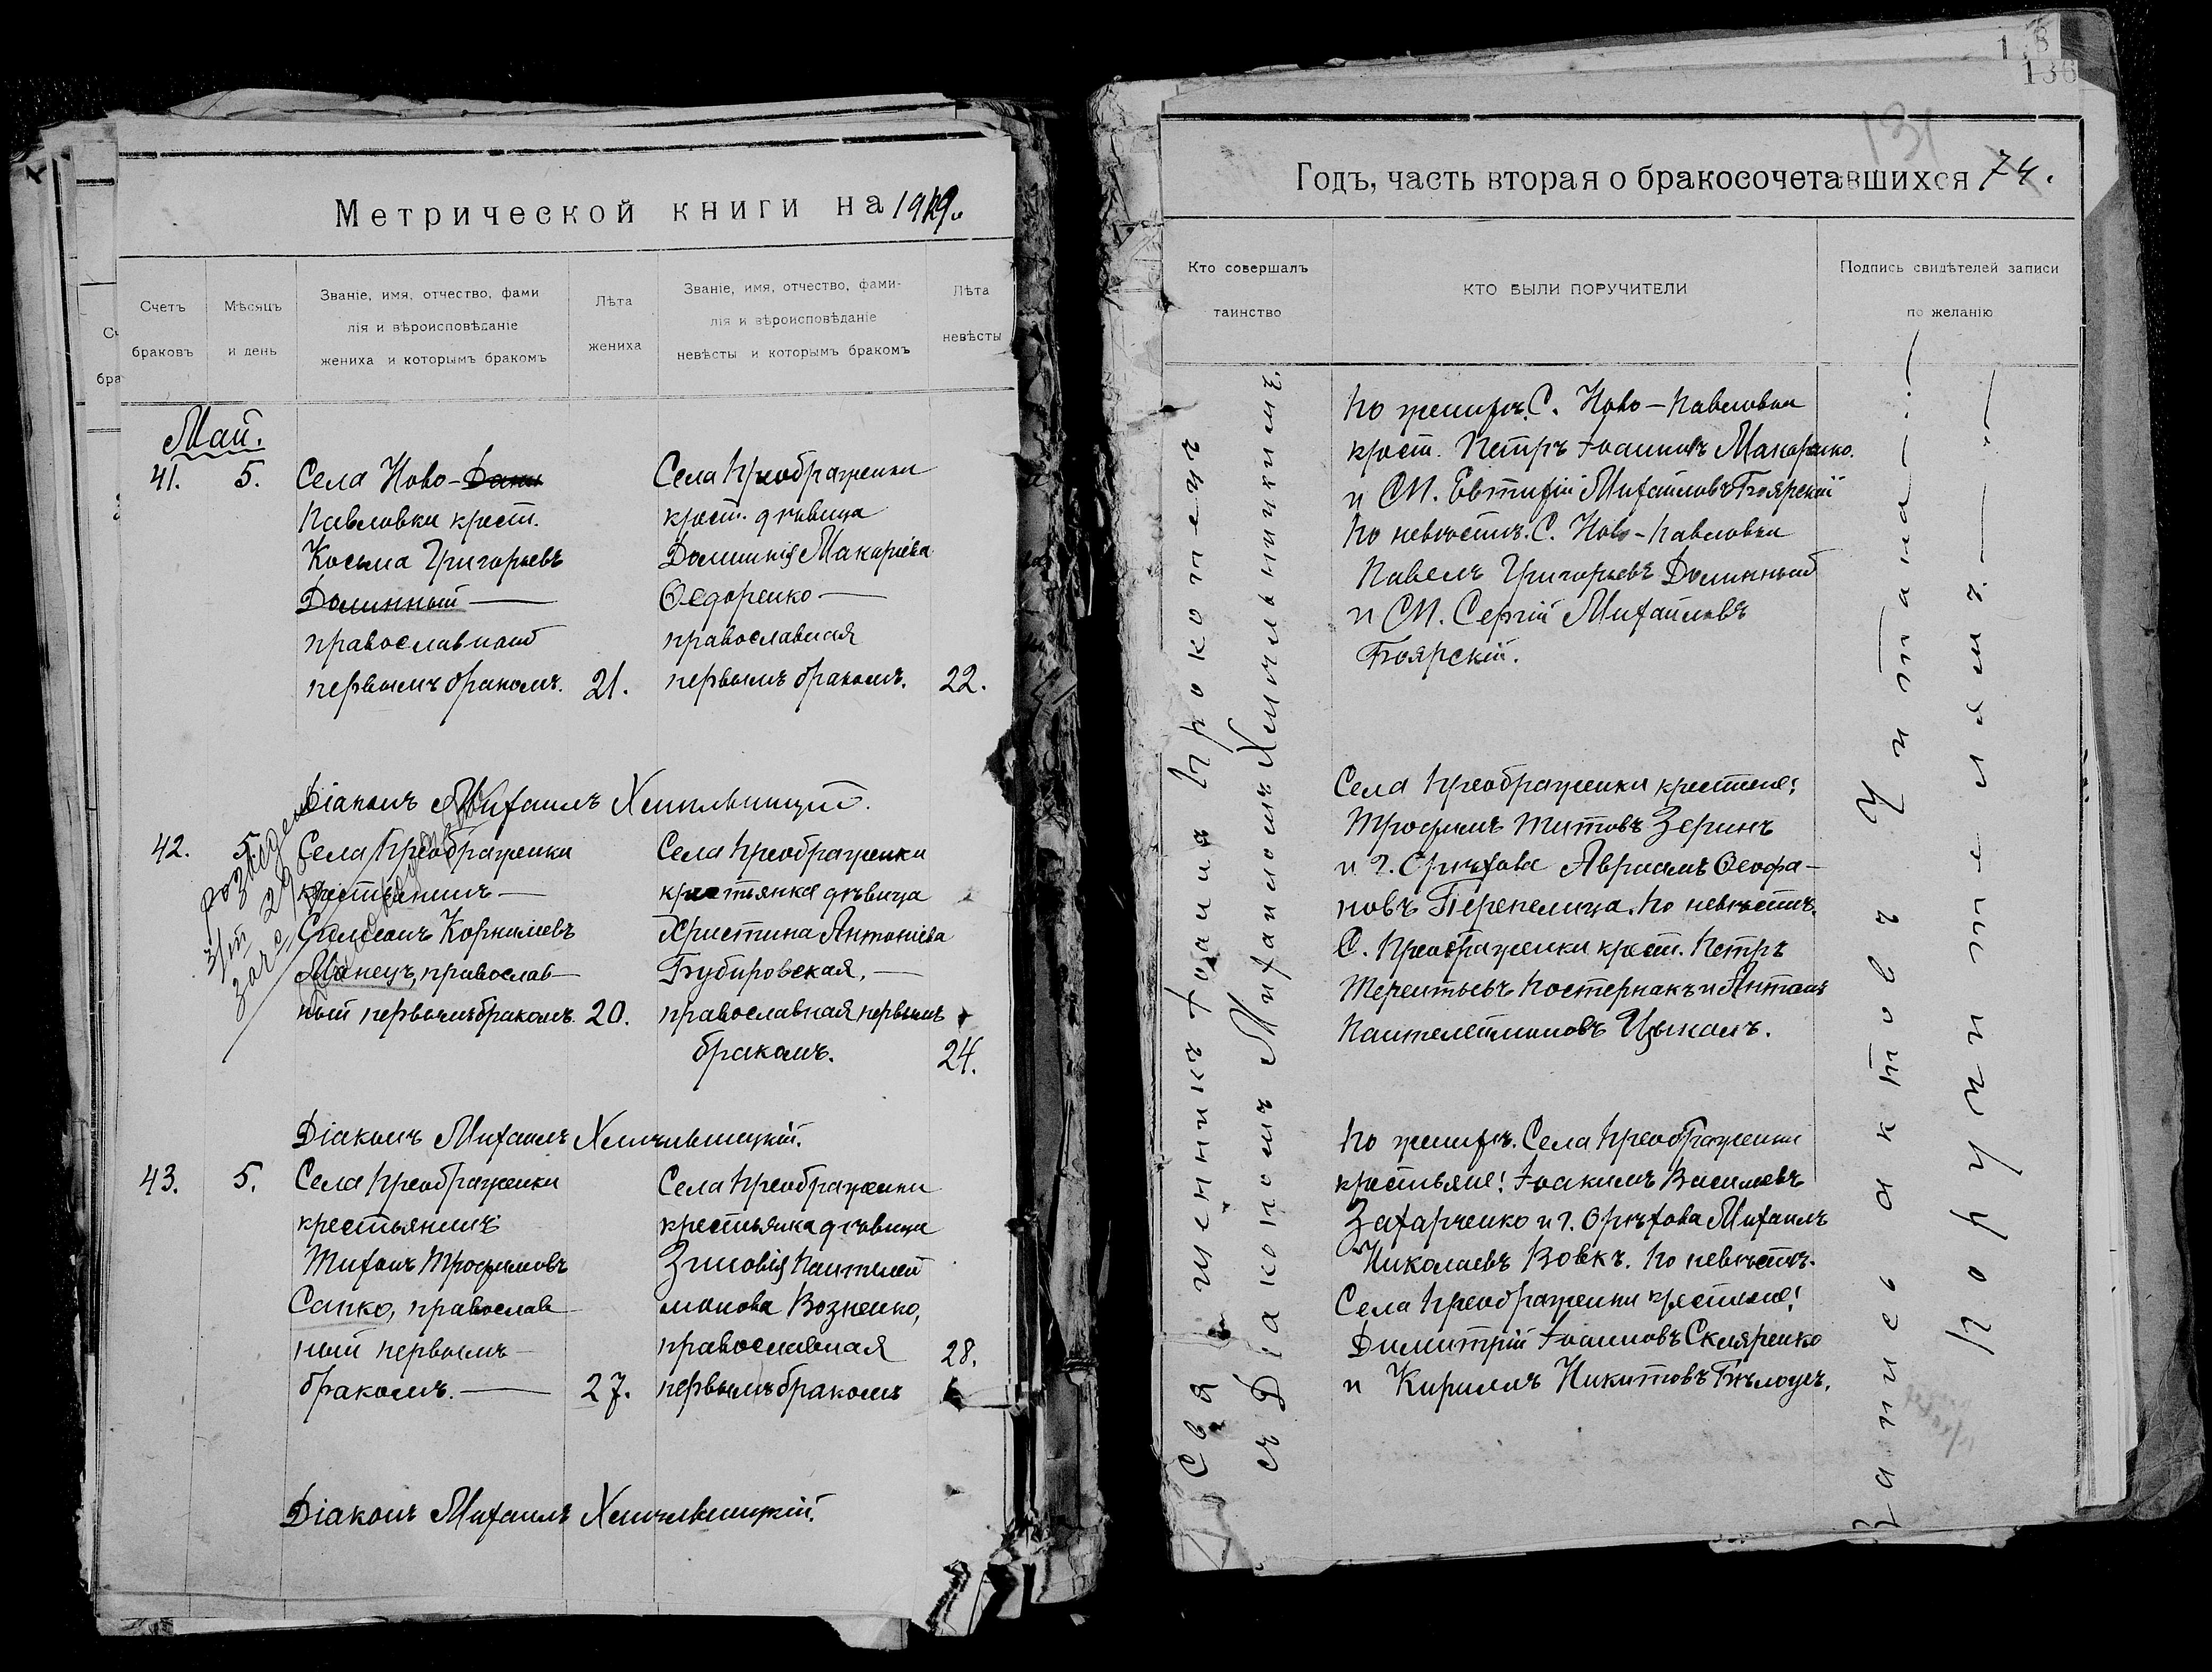 Метрической книги на 1919.
Счетъ
браковъ
Мѣсяцъ
и день
Званіе, имя, отчество, фами
лія и вѣроисповѣданіе
жениха и которымъ бракомъ
Лѣта
жениха
Званіе, имя, отчество, фами-
лія и вѣроисповѣданіе
невѣсты и которымъ бракомъ
Лѣта
невѣсты
Май.
41. 5.
Села Ново-
Павловки крест.
Косьма Григорьевъ
Долинный —
православный
первымъ бракомъ. 21.
Села Преображенки
крест. дѣвица
Домникія Макаріева
Ѳедоренко —
православная
первымъ бракомъ. 22.
Діаконъ Михаилъ Хмильницкій.
42. 5.
Села Преображенки
крестьянинъ —
Симеонъ Корниліевъ
Манецъ, православ-
ный первымъ бракомъ. 20.
Села Преображенки
крестьянка дѣвица
Христина Антоніева
Бубировская, —
православная первымъ
бракомъ. 24.
Діаконъ Михаилъ Хмильницкій.
43. 5.
Села Преображенки
крестьянинъ
Тихонъ Трофимовъ
Сапко, православ-
ный первымъ —
бракомъ. — 27.
Села Преображенки
крестьянка дѣвица
Зиновія Пантелей
монова Возненко,
православная 28.
первымъ бракомъ
Діаконъ Михаилъ Хмильницкій.
130
131
Годъ, часть вторая о бракосочетавшихся 74.
Кто совершалъ
таинство
КТО БЫЛИ ПОРУЧИТЕЛИ
Подпись свидѣтелей записи
по желанію
Священникъ Іоаннъ Прокопецъ
съ Діакономъ Михаиломъ Хмильницкимъ.
По женихѣ. С. Ново-Павловки
крест. Петръ Іоанновъ Макаренко.
и СМ. Евтихій Михайловъ Боярскій
По невѣстѣ. С. Ново-Павловки
Павелъ Григорьевъ Долинный
и СМ. Сергій Михайловъ
Боярскій.
Села Преображенки крестяне:
Трофимъ Титовъ Зеринъ
и г. Орѣхова Авраамъ Ѳеофа-
новъ Перепелица. По невѣстѣ.
С. Преображенки крест. Петръ
Терентьевъ Постернакъ и Антонъ
Пантелеймоновъ Цыганъ.
По женихѣ. Села Преображенки
крестьяне: Іоакимъ Василіевъ
Захарченко и г. Орѣхова Михаилъ
Николаевъ Вовкъ. По невѣстѣ.
Села Преображенки крестяне:
Димитрій Іоанновъ Скляренко
и Кириллъ Никитовъ Бѣлоусъ.
Запись актовъ читана —
поручителямъ. —